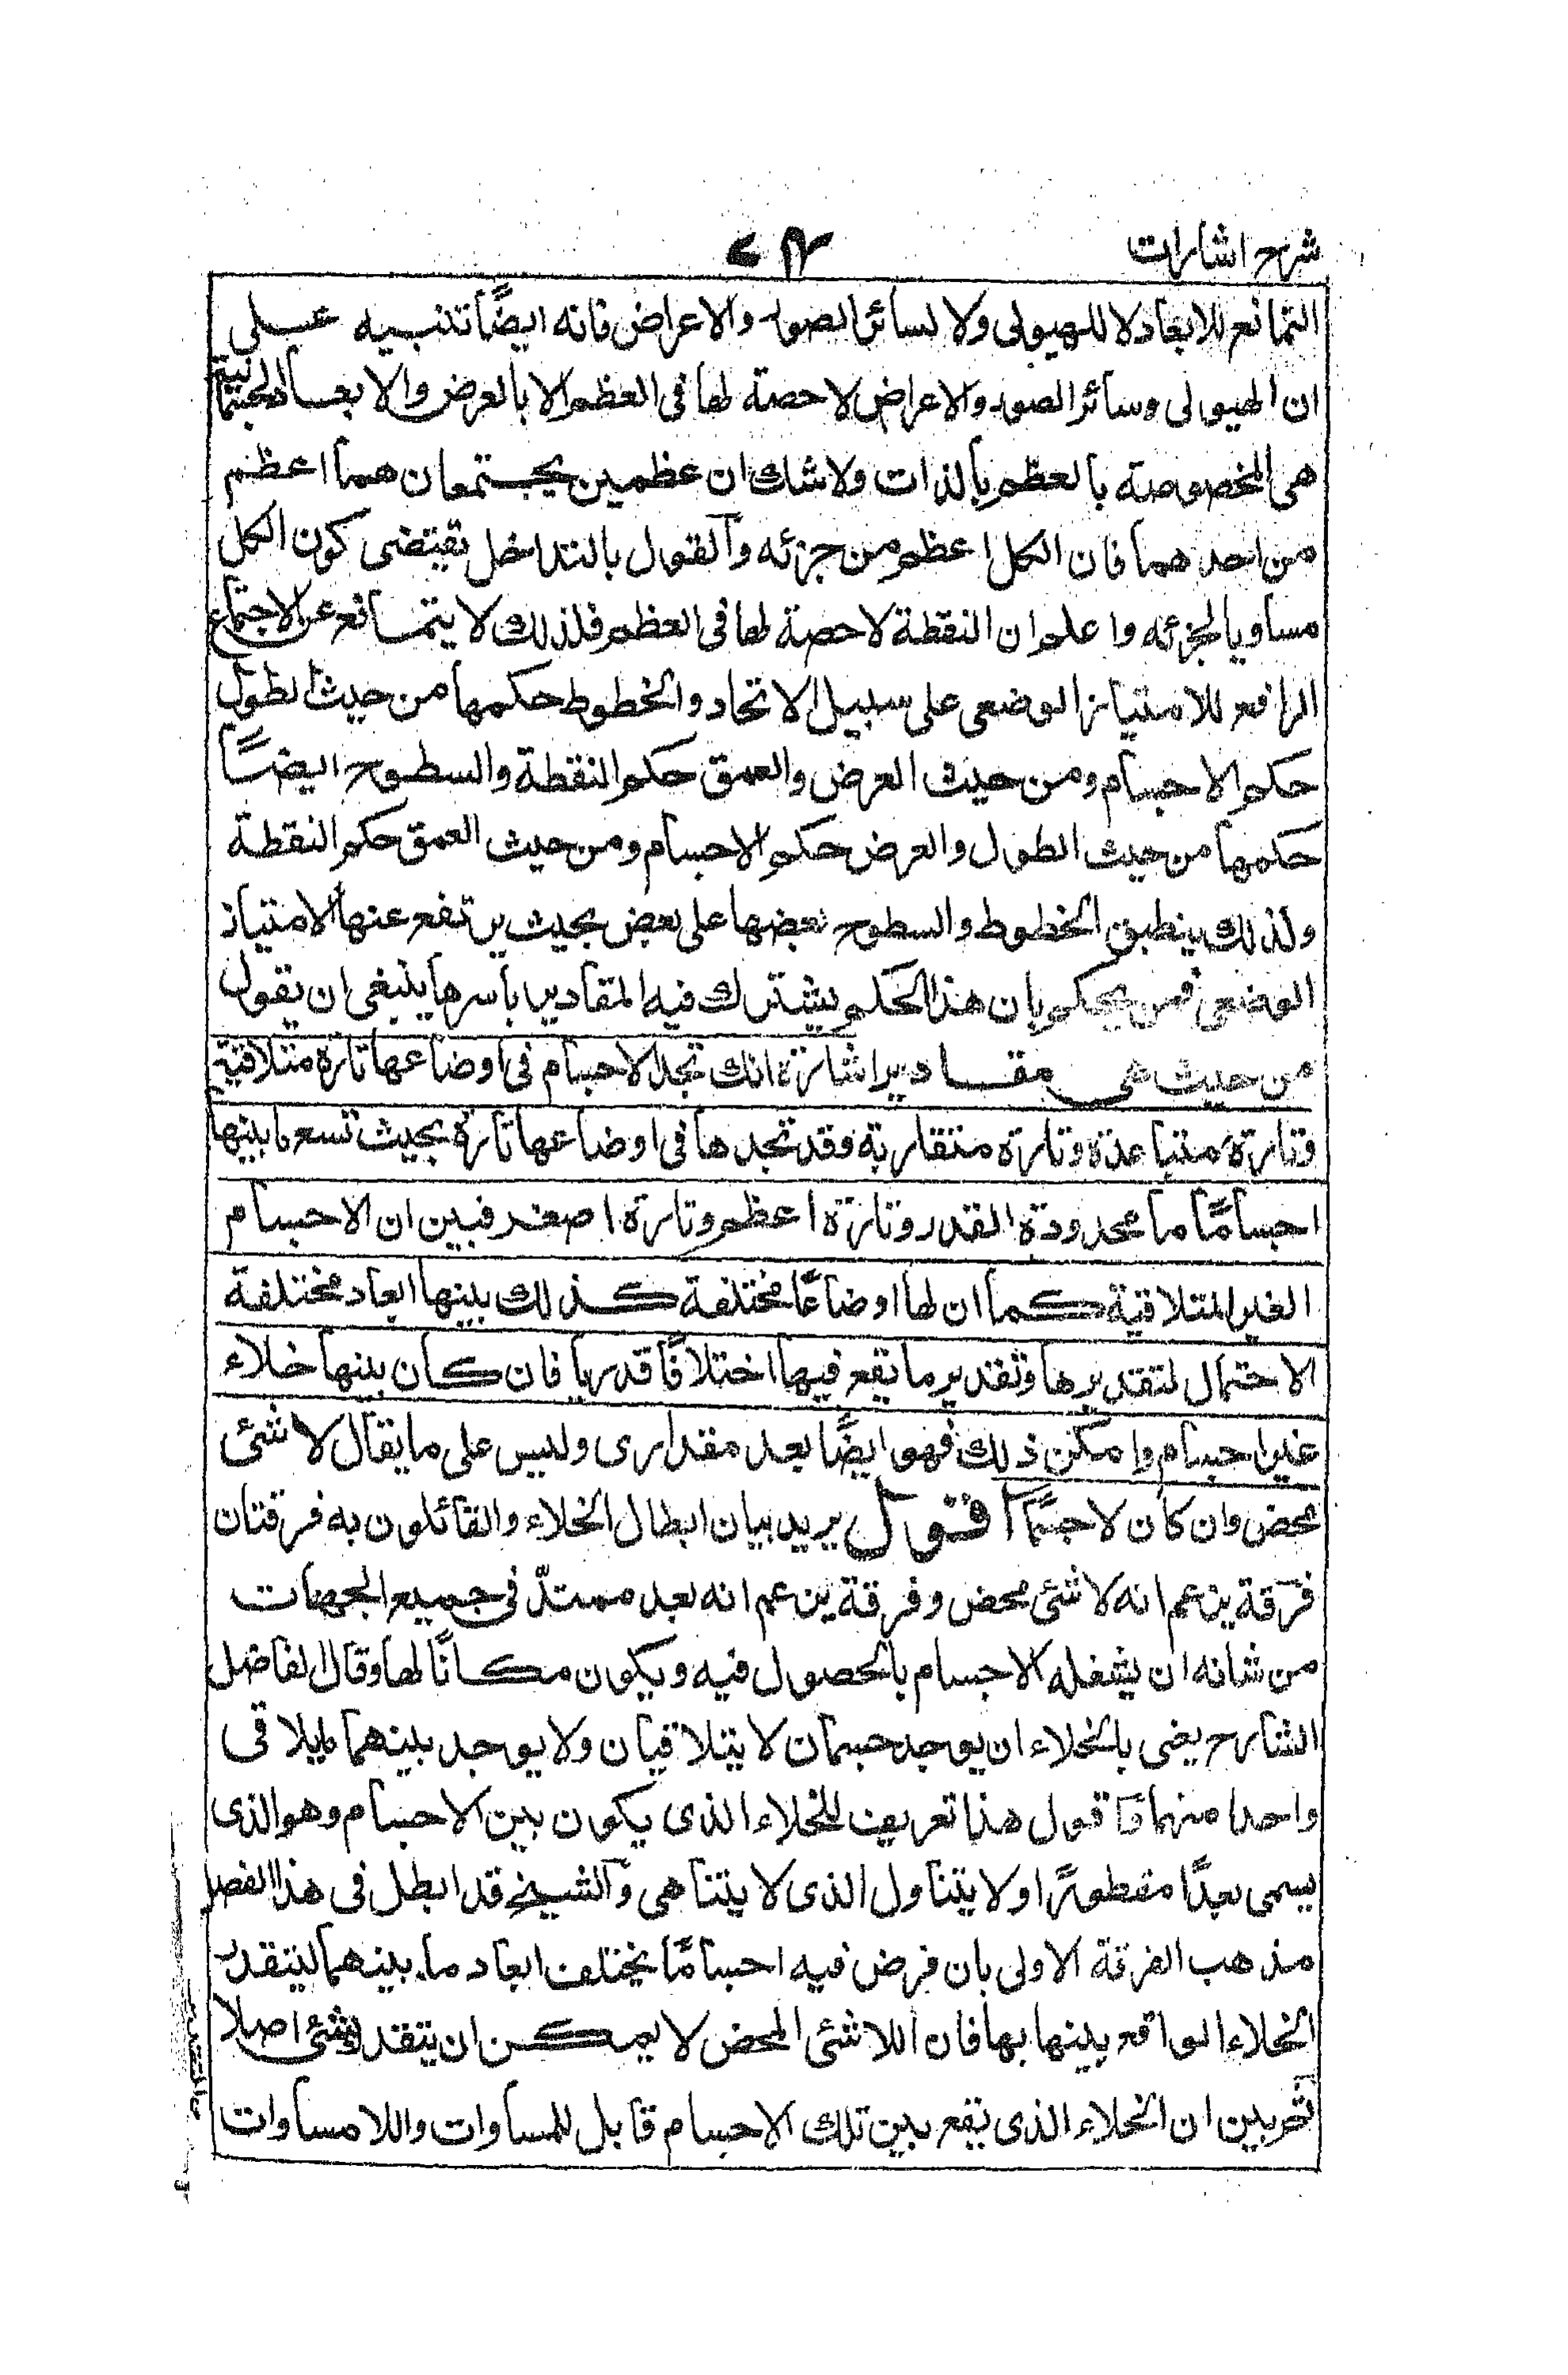 شرح اشارات
التمانع للابعاد لا للهيولى ولا لسائر الصور والاعراض فانه ايضًا تنبيه على
ان الهيولى وسائر الصور والاعراض لا حصة لها فى العظم الا بالعرض والابعاد الجسمانية
هى المخصوصة بالعظم بالذات ولا شك ان عظمين يجتمعان هما اعظم
من احدهما فان الكل اعظم من جزئه والقول بالتداخل يقتضى كون الكل
مساويا لجزئه واعلم ان النقطة لا حصة لها فى العظم فلذلك لا يتمانع عن الاجتماع
الرافع للامتياز الوضعى على سبيل الاتحاد والخطوط حكمها من حيث الطول
حكم الاجسام ومن حيث العرض والعمق حكم النقطة والسطوح ايضًا
حكمها من حيث الطول والعرض حكم الاجسام ومن حيث العمق حكم النقطة
ولذلك ينطبق الخطوط والسطوح بعضها على بعض بحيث يرتفع عنها الامتياز
الوضعى فمن يحكم بان هذا الحكم يشترك فيه المقادير باسرها ينبغى ان يقول
من حيث هى مقادير اشارة انك تجد الاجسام فى اوضاعها تارة متلاقية
وتارة متباعدة وتارة متقاربة وقد تجدها فى اوضاعها تارة بحيث تسع ما بينها
اجسامًا ما محدودة القدر وتارة اعظم وتارة اصغر فبين ان الاجسام
الغير المتلاقية كما ان لها اوضاعًا مختلفة كذلك بينها ابعاد مختلفة
الاحتمال لتقديرها وتقدير ما يقع فيها اختلافًا قدريا فان كان بينها خلاء
غير اجسام وامكن ذلك فهو ايضًا بعد مقدارى وليس على ما يقال لا شئ
محض وان كان لا جسمًا اقول يريد بيان ابطال الخلاء والقائلون به فرقتان
فرقة يزعم انه لا شئ محض وفرقة يزعم انه بعد ممتدّ فى جميع الجهات
من شانه ان يشغله الاجسام بالحصول فيه ويكون مكانًا لها وقال الفاضل
الشارح يعنى بالخلاء ان يوجد جسمان لا يتلاقيان ولا يوجد بينهما ما يلاقى
واحدا منهما فاقول هذا تعريف للخلاء الذى يكون بين الاجسام وهو الذى
يسمى بعدًا مفطورًا ولا يتناول الذى لا يتناهى والشيخ قد ابطل فى هذا الفصل
مذهب الفرقة الاولى بان فرض فيه اجسامًا يختلف ابعاد ما بينهما ليتقدر
الخلاء الواقع بينها بها فان اللا شئ المحض لا يمكن ان يتقدر بشئ اصلا
ثم بين ان الخلاء الذى يقع بين تلك الاجسام قابل للمساوات واللا مساوات